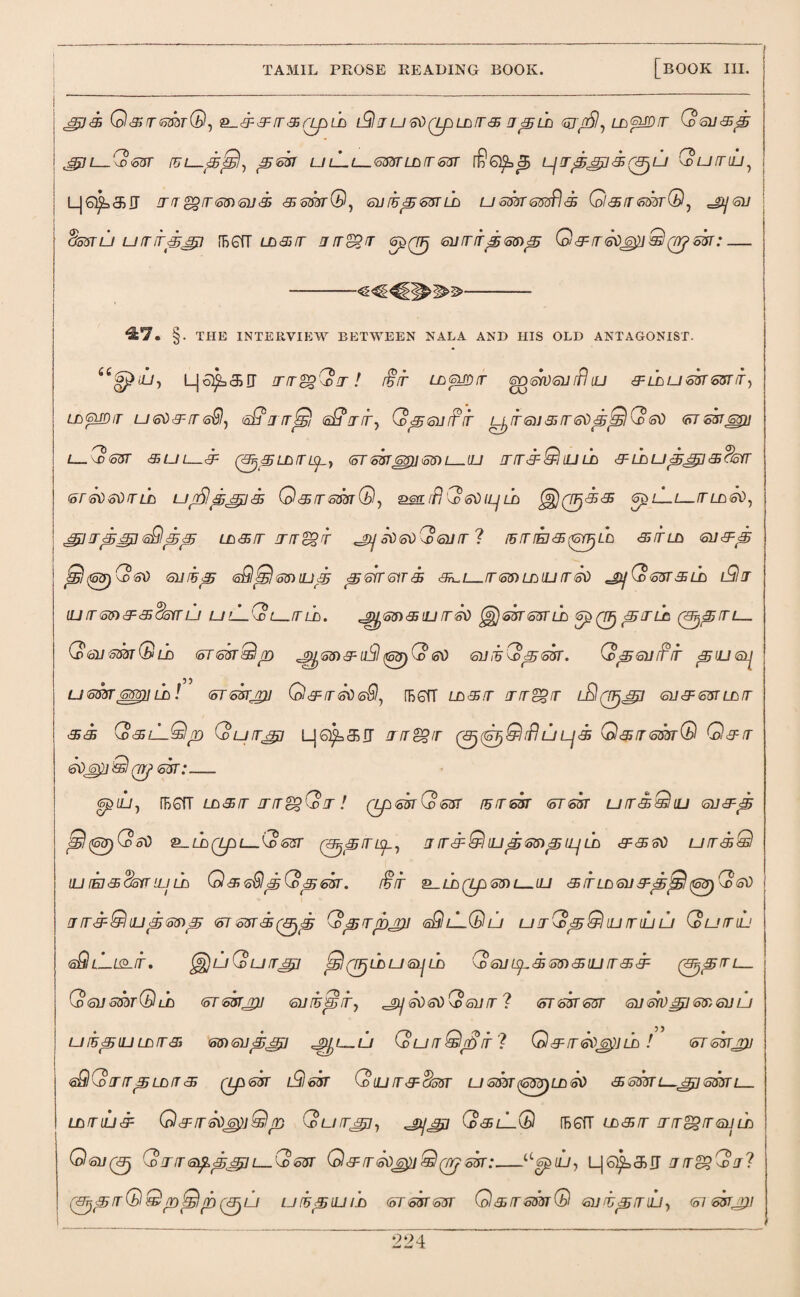 TAMIL PROSE READING BOOK. [BOOK III.
துக் கொண்டு, உச்சாகமும் பிரபலமுமாக ரதம் ஏறி, மஹா வேகத்
துடனே நடத்தி, தன் பட்டணமான நிஷத புரத்துக்குப் போய்,
புஷ்கர ராஜாவைக் கண்டு, வந்தனம் பண்ணிக் கொண்டு, அவ
னைப் பார்த்து நள மகா ராஜா ஒரு வார்த்தை சொல்லுகிறான்:—
47. §. THE INTERVIEW BETWEEN NALA AND HIS OLD ANTAGONIST.
“ஓய், புஷ்கர ராஜரே! நீர் மஹா ஐஸ்வரிய சம்பன்னர்,
மஹா பலசாலி, வீராதி வீரர், தேவரீர் பூர்வகாலத்திலே என்னு
டனே கபடச் சூதமாடி, என்னுடைய ராச்சியம் சம்பத்துக்களை
எல்லாம் பறித்துக் கொண்டு, ஊரிலேயும் இருக்க ஒட்டாமல்,
துரத்துவித்த மகா ராஜர் அல்லவோ? நாங்களும் காம வசத்
தினாலே வந்த விதியைத் தள்ளக் கூடாமையால் அனேகம் பிர
யாசைகளைப் பட்டோம். ஆகையால் இன்னம் ஒரு தரம் சூதாட
வேண்டும் என்கிற ஆசையினாலே வந்தேன். தேவரீர் தயவு
பண்ணும்!” என்று சொல்லி, நள மகா ராஜா மிருது வசனமா
கக் கேட்கிற போது புஷ்கர ராஜா குஞ்சிரிப்புக் கொண்டு சொ
ல்லுகிறான்:—
ஓய், நள மகா ராஜரே! முன்னே நான் என் பாக்கிய வச
த்தினாலே உம்முடனே சூதாடி, ராச்சியத்தையும் சகல பாக்கி
யங்களையும் கெவித்தேன். நீர் உம்முடைய காமவசத்தினாலே
ராச்சியத்தை எனக்குத் தோற்று விட்டுப் பரதேசியாய்ப் போய்
விட்டீர். இப்போது திரும்பவும் வேடிக்கையாகச் சூதாட
வேண்டும் என்று வந்தீர், அல்லவோ? என்ன வஸ்து வைவப்
பந்தயமாக வைத்து ஆடப் போகிறீர்? சொல்லும்!” என்று
விரோதமாக முன் பின் யோசனை பண்ணாமல் கண்டதுண்ட
மாய்ச் சொல்லுகிற போது, அது கேட்டு நள மகா ராஜாவும்
வெகு ரோஷத்துடனே சொல்லுகிறான்:—“ஓய், புஷ்கர ராஜரே?
சூதாடுகிறதிற்குப் பந்தயம் என்ன கொண்டு வந்தாய், என்று
224